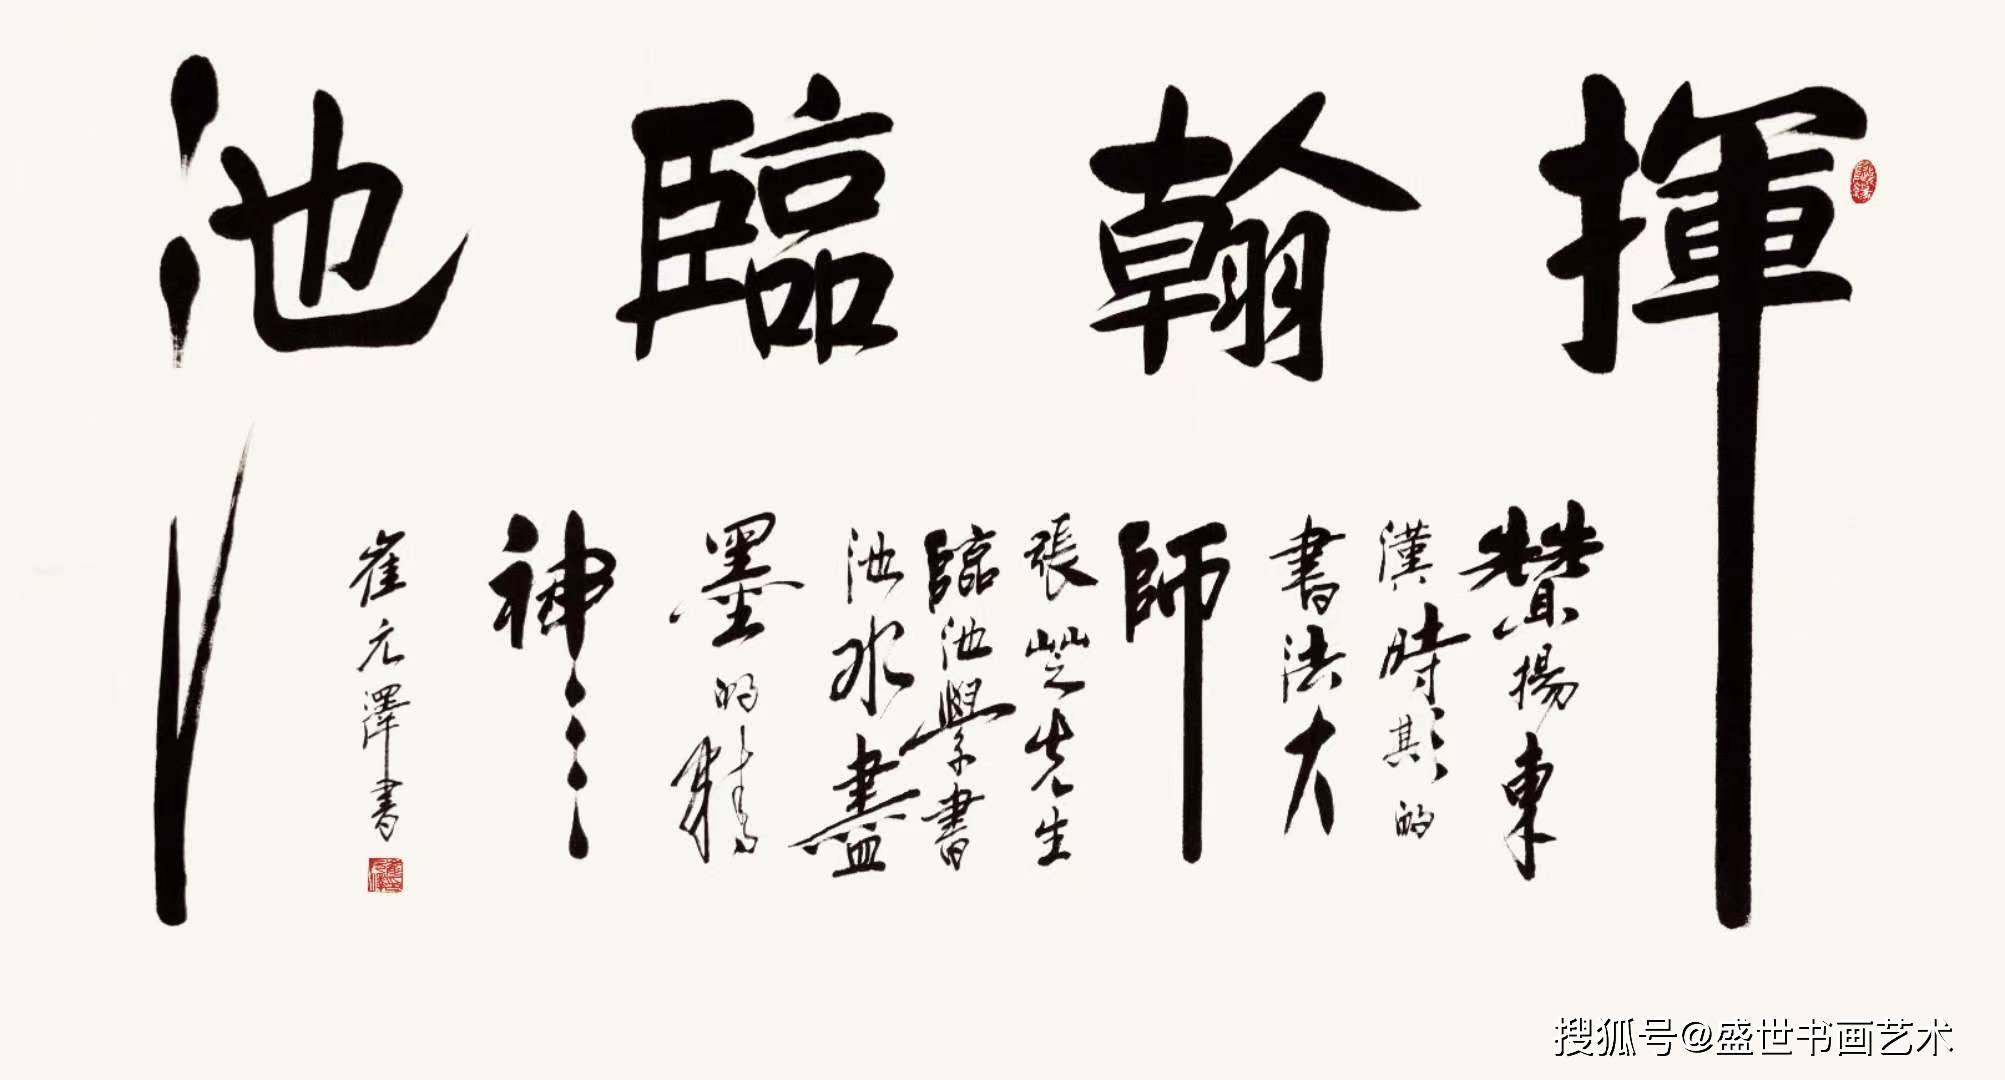 揮翰臨池
贊揚東
漢時期的
書法大
師
張芝先生
臨池學書
池水盡
墨的精
神
崔元澤書
搜狐号@盛世书画艺术